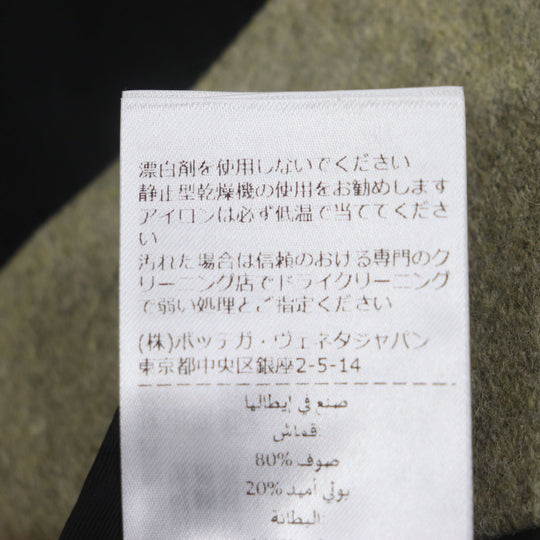 漂白剤を使用しないでください
静止型乾燥機の使用をお勧めします
アイロンは必ず低温で当ててくださ
い
汚れた場合は信頼のおける専門のク
リーニング店でドライクリーニング
で弱い処理とご指定ください
(株)ボッテガ・ヴェネタジャパン
東京都中央区銀座2-5-14
صنع في إيطاليا
قماش:
صوف %80
بولي أميد %20
البطانة: